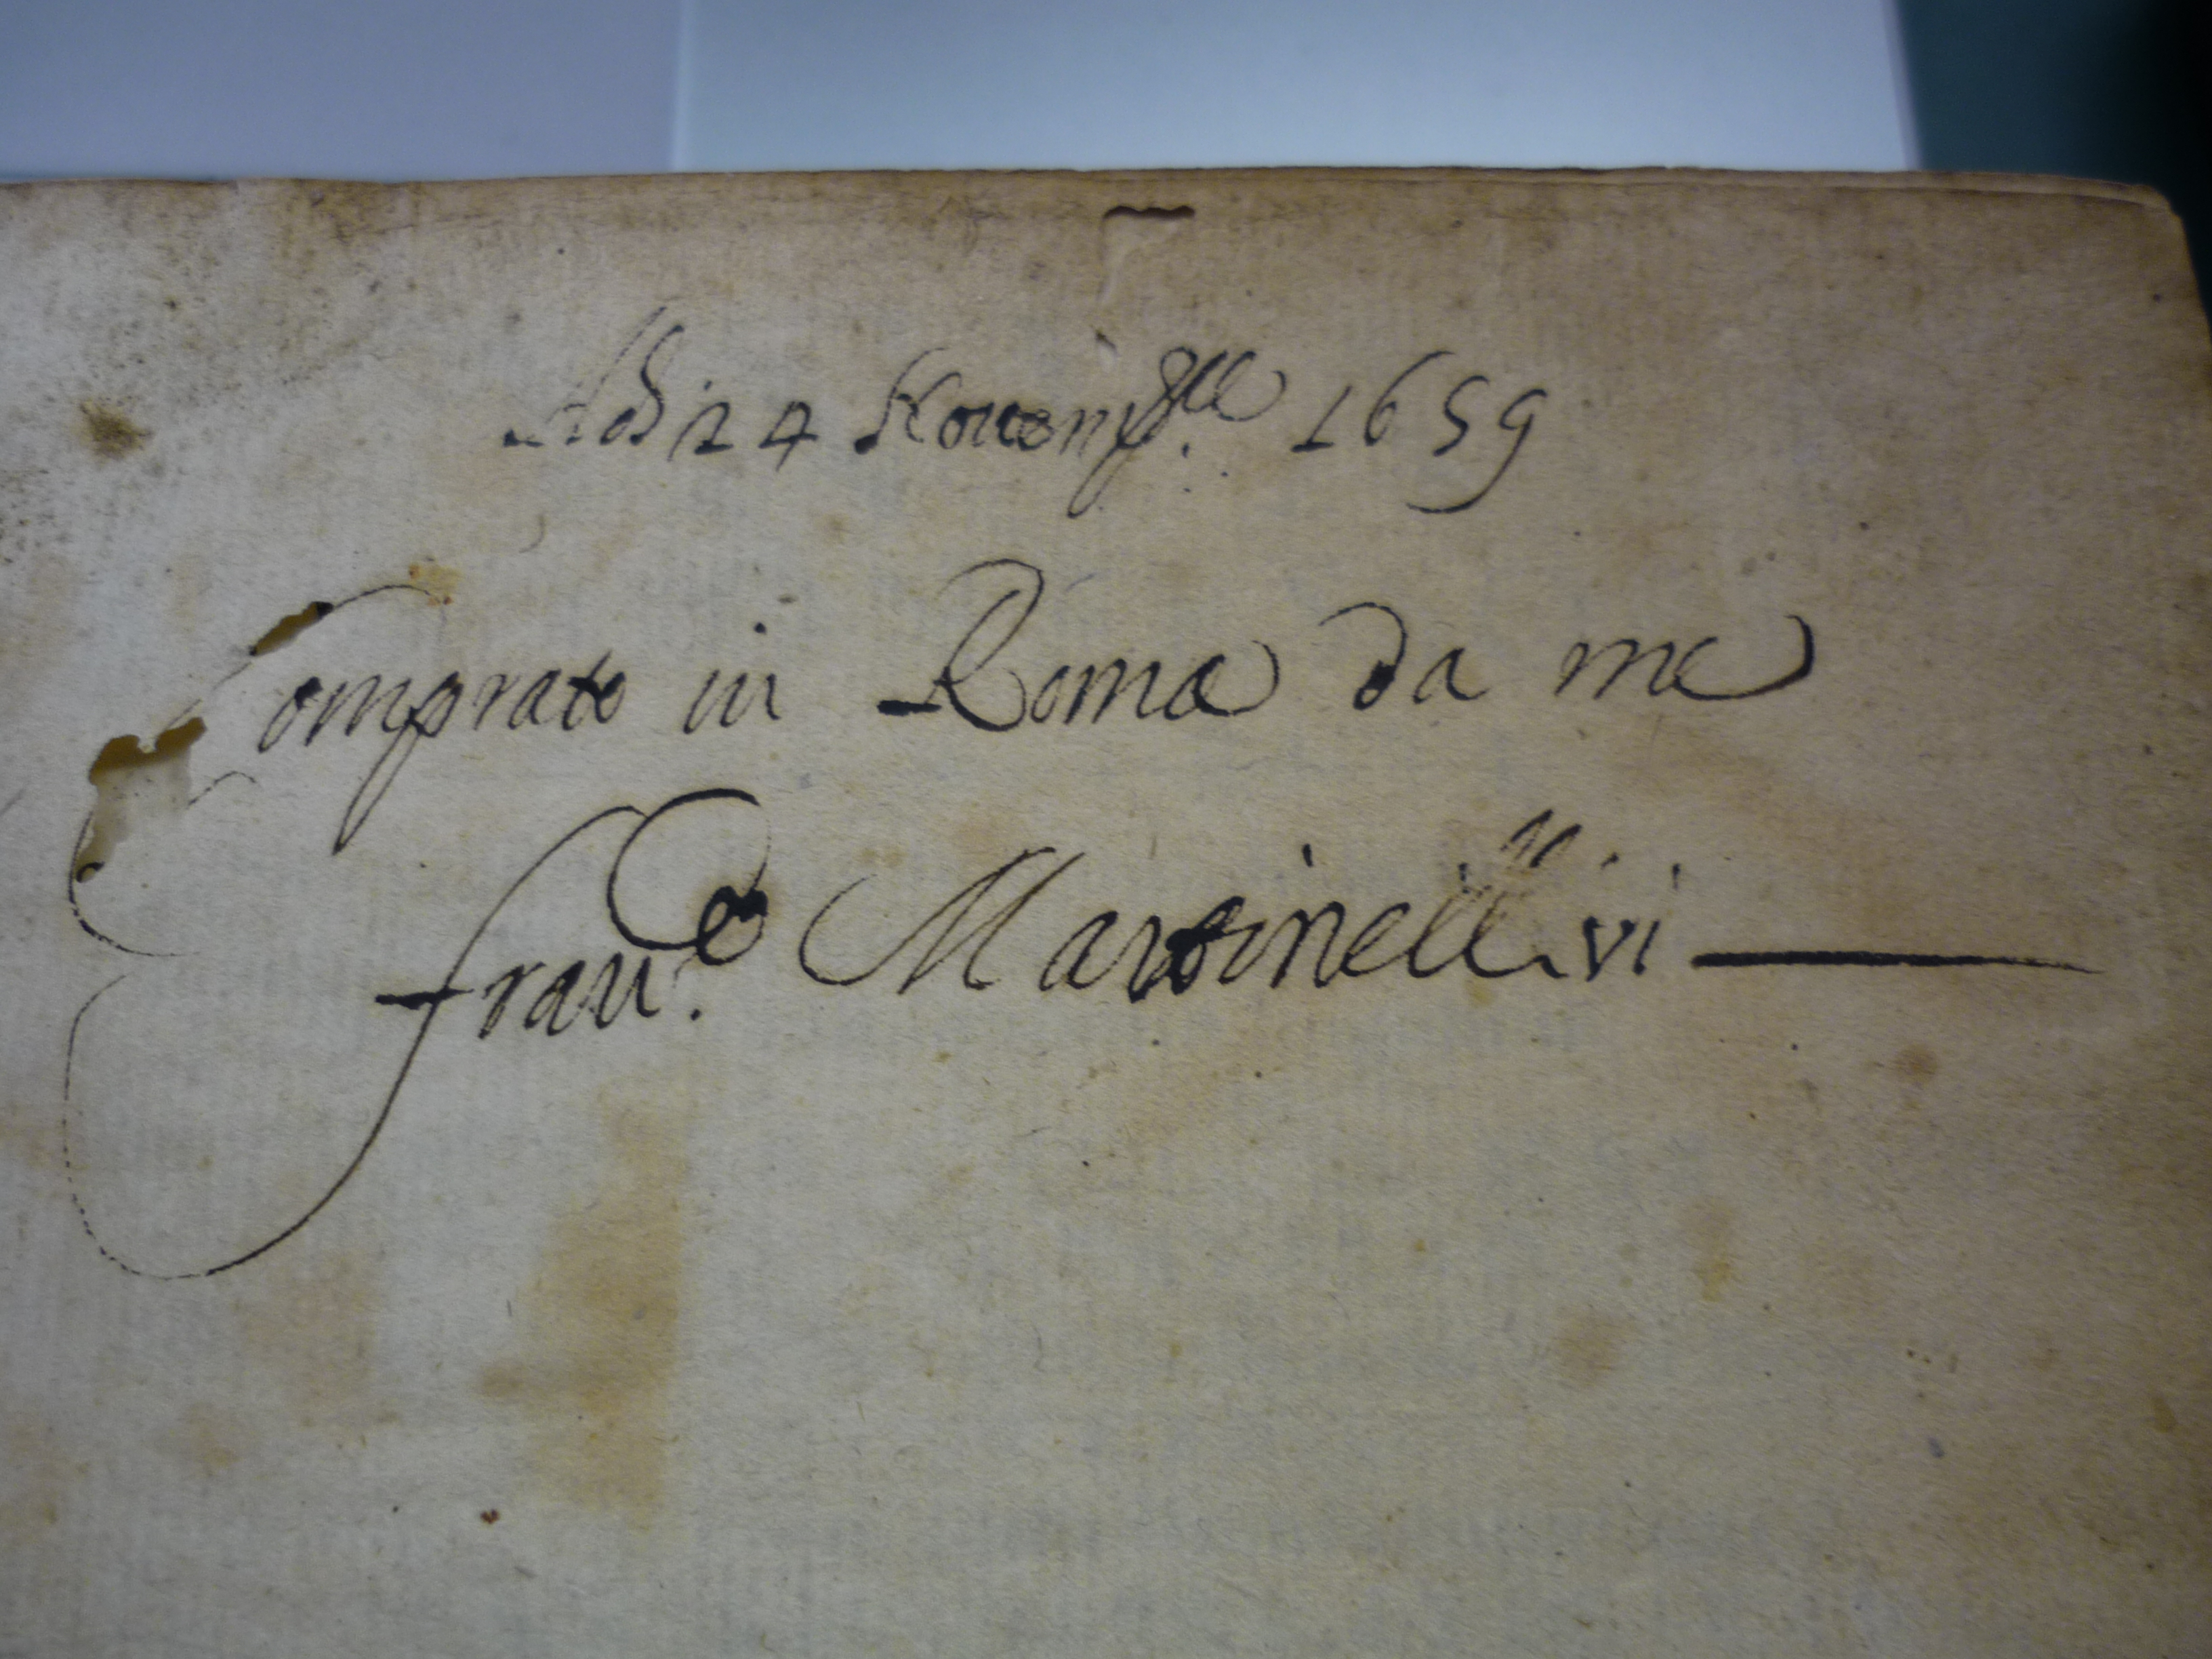 Adi 24 Novemb.re 1659
Comprato in Roma da me
Fran.co Martinelli